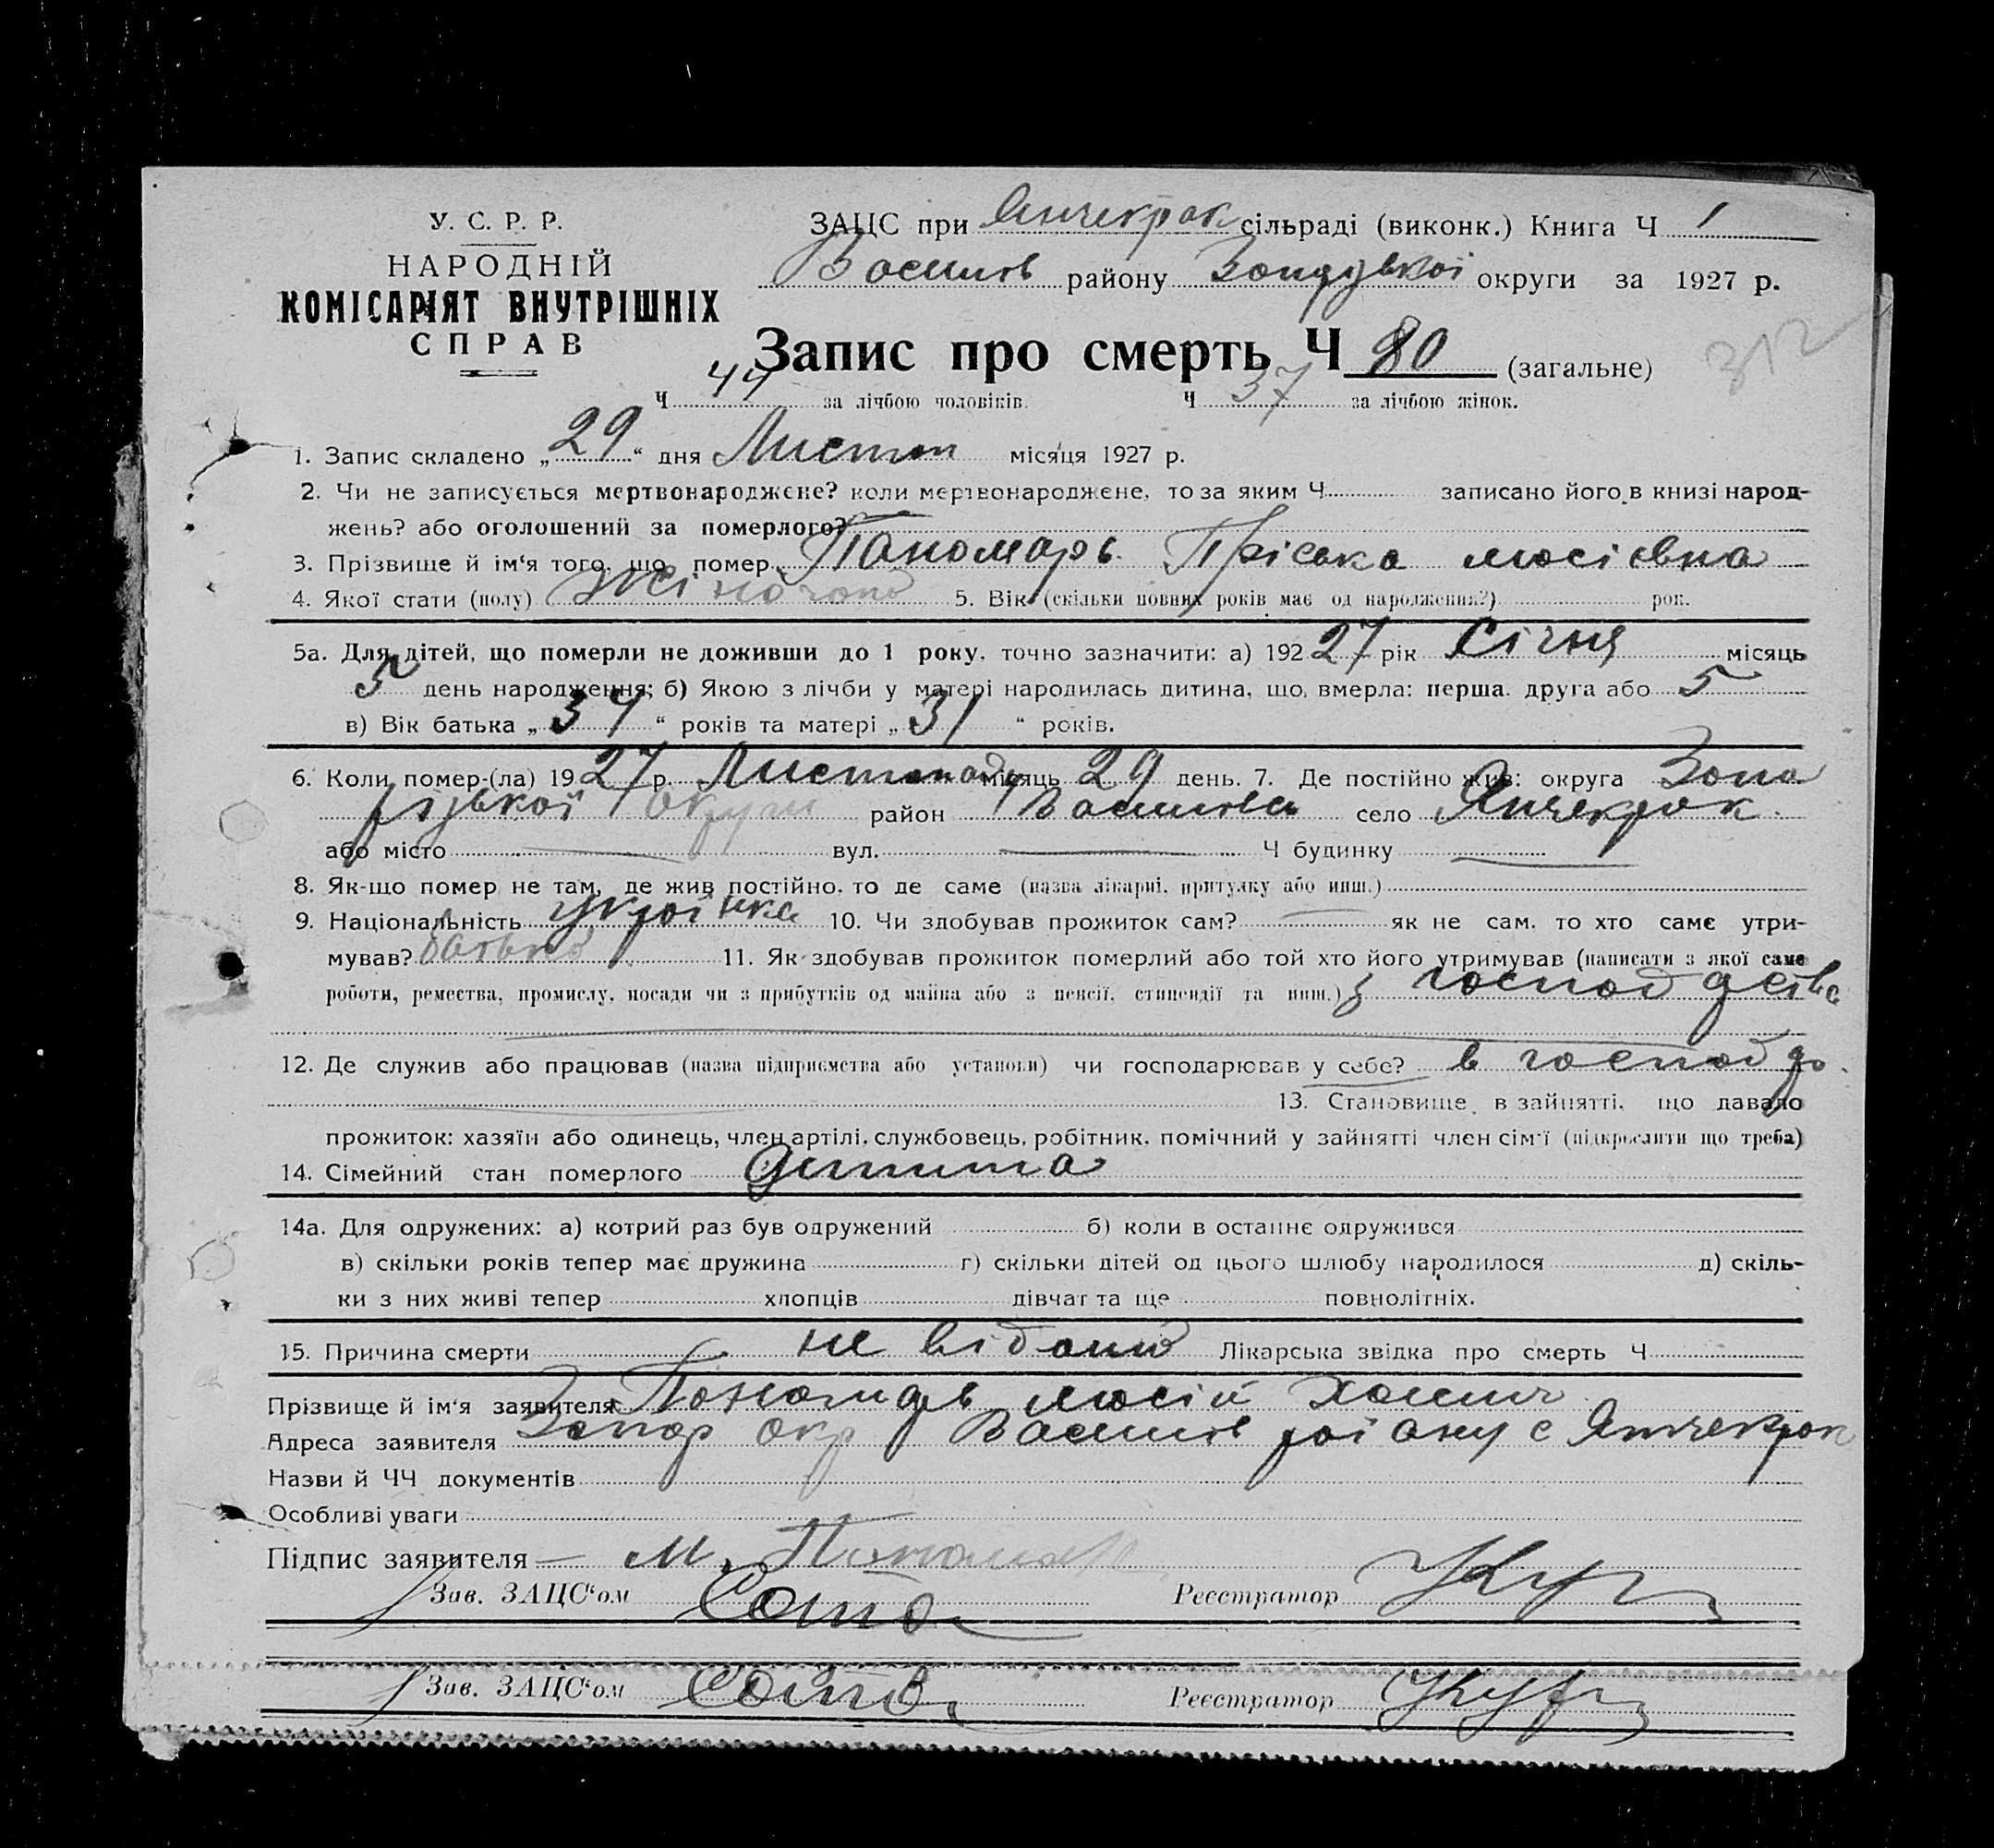 У. С. Р. Р.
НАРОДНІЙ
КОМІСАРІЯТ ВНУТРІШНІХ
СПРАВ
ЗАЦС при Янчекрак сільраді (виконк.) Книга Ч 1
Василів району округи за 1927 р.
Запис про смерть Ч 80 (загальне)
312
Ч 44 за лічбою чоловіків. Ч 37 за лічбою жінок.
1. Запис складено „ 29 “ дня Листоп місяця 1927 р.
2. Чи не записується мертвонароджене? коли мертвонароджене, то за яким Ч записано його в книзі народ-
жень? або оголошений за померлого?
3. Прізвище й ім‘я того, що помер Паномарь Пріська мосієвна
4. Якої стати (полу) жіночої 5. Вік (скільки повних років має од народження?) рок.
5а. Для дітей, що померли не доживши до 1 року, точно зазначити: а) 192 27 рік Січня місяць
5 день народження; б) Якою з лічби у матері народилась дитина, що вмерла: перша, друга або 5
в) Вік батька „ 34 “ років та матері „ 31 “ років.
6. Коли помер-(ла) 19 27 р. Листопад місяць 29 день. 7. Де постійно жив: округа Запо
різької округи район Василівськ село Янчекрак
або місто вул. Ч будинку
8. Як-що помер не там, де жив постійно, то де саме (назва лікарні, притулку або инш.)
9. Національність українка 10. Чи здобував прожиток сам? як не сам, то хто саме утри-
мував? батько 11. Як здобував прожиток померлий або той хто його утримував (написати з якої саме
роботи, ремества, промислу, посади чи з прибутків од майна або з пенсії, стипендії та инш.) з господарства
12. Де служив або працював (назва підприємства або установи) чи господарював у себе? в господ
13. Становище в зайнятті, що давало
прожиток: хазяїн або одинець, член артілі, службовець, робітник, помічний у зайнятті член сім‘ї (підкреслити що треба)
14. Сімейний стан померлого дитина
14а. Для одружених: а) котрий раз був одружений б) коли в останнє одружився
в) скільки років тепер має дружина г) скільки дітей од цього шлюбу народилося д) скіль-
ки з них живі тепер хлопців дівчат та ще повнолітніх.
15. Причина смерти не відомо Лікарська звідка про смерть Ч
Прізвище й ім‘я заявителя Паномарь мосій Хомич
Адреса заявителя Запор окр Василів району с Янчекрак
Назви й ЧЧ документів
Особливі уваги
Підпис заявителя — М. Паномарь
Зав. ЗАЦС‘ом Реєстратор
Зав. ЗАЦС‘ом Реєстратор